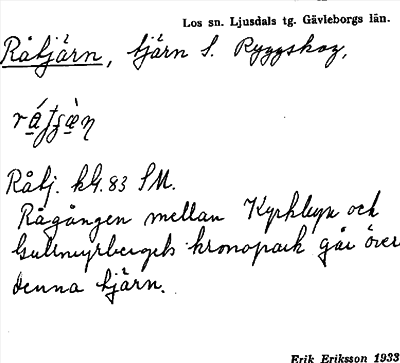 Los sn. Ljusdals tg. Gävleborgs län.
Råtjärn, tjärn S. Ryggskog,
Råtj. kG. 83 SM.
Rågången mellan Kyrkbyn och
Gullmyrbergets kronopark går över
denna tjärn.
Erik Eriksson 1933